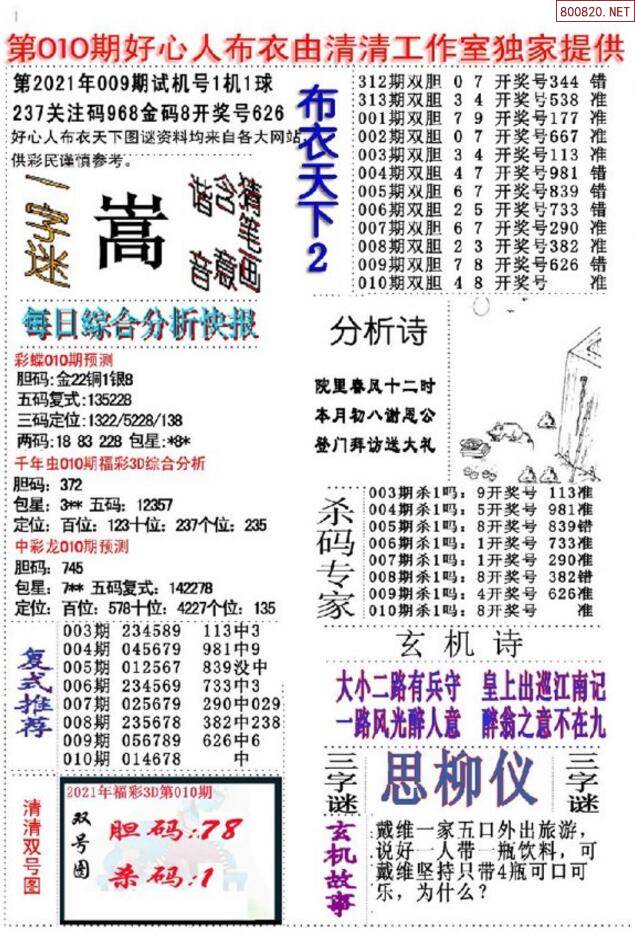 800820.NET
第010期好心人布衣由清清工作室独家提供
第2021年009期试机号1机1球
237关注码968金码8开奖号626
好心人布衣天下图谜资料均来自各大网站,
供彩民谨慎参考。
一字谜
嵩
猜笔画
含意
谐音
布衣天下2
312期双胆 0 7 开奖号344 错
313期双胆 3 4 开奖号538 准
001期双胆 7 9 开奖号177 准
002期双胆 0 7 开奖号667 准
003期双胆 3 4 开奖号113 准
004期双胆 4 7 开奖号981 错
005期双胆 6 7 开奖号839 错
006期双胆 2 5 开奖号733 错
007期双胆 6 7 开奖号290 准
008期双胆 2 3 开奖号382 准
009期双胆 7 8 开奖号626 错
010期双胆 4 8 开奖号 准
每日综合分析快报
彩蝶010期预测
胆码:金22铜1银8
五码复式:135228
三码定位:1322/5228/138
两码:18 83 228 包星:*8*
千年虫010期福彩3D综合分析
胆码: 372
包星: 3** 五码: 12357
定位: 百位: 123十位: 237个位: 235
中彩龙010期预测
胆码: 745
包星: 7** 五码复式: 142278
定位: 百位: 578十位: 4227个位: 135
分析诗
院里春风十二时
本月初八谢恩公
登门拜访送大礼
杀码专家
003期杀1吗: 9开奖号 113准
004期杀1吗: 5开奖号 981准
005期杀1吗: 8开奖号 839错
006期杀1吗: 1开奖号 733准
007期杀1吗: 1开奖号 290准
008期杀1吗: 8开奖号 382错
009期杀1吗: 4开奖号 626准
010期杀1吗: 8开奖号 准
复式推荐
003期 234589 113中3
004期 045679 981中9
005期 012567 839没中
006期 234569 733中3
007期 025679 290中029
008期 235678 382中238
009期 056789 626中6
010期 014678 中
玄机诗
大小二路有兵守 皇上出巡江南记
一路风光醉人意 醉翁之意不在九
三字谜
思柳仪
三字谜
清清双号图
2021年福彩3D第010期
双号图
胆码:78
杀码:1
玄机故事
戴维一家五口外出旅游,
说好一人带一瓶饮料, 可
戴维坚持只带4瓶可口可
乐, 为什么?